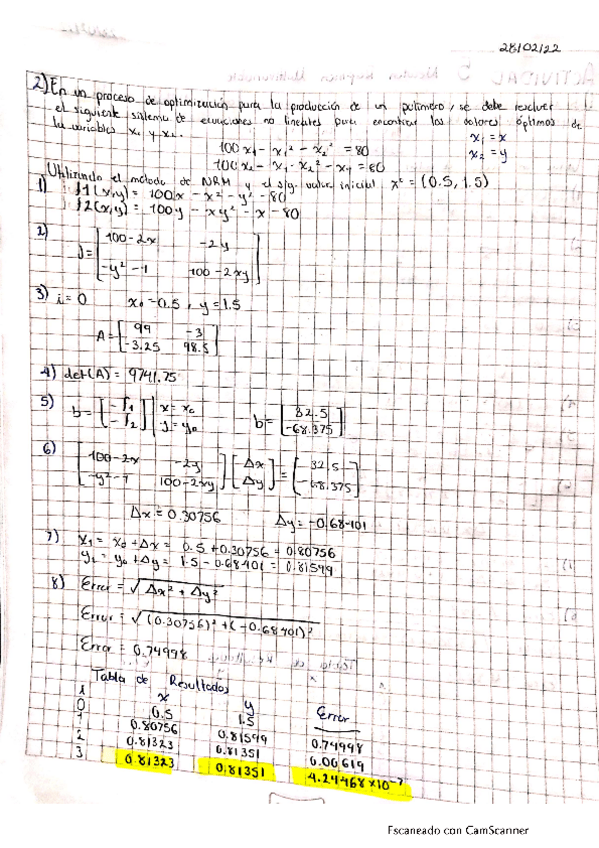 28/02/22
ACTIVIDAD 5
2) En un proceso de optimización para la producción de un polímero, se debe resolver
el siguiente sistema de ecuaciones no lineales para encontrar los valores óptimos de
la variables x₁ y x₂.
x₁ = x
100x₁ - x₁² - x₂² = 80
x₂ = y
100x₂ - x₁·x₂² - x₁ = 80
Utilizando el metodo de NRM y el sig. valor inicial x⁰ = (0.5, 1.5)
1) f1(x,y) = 100x - x² - y² - 80
f2(x,y) = 100y - xy² - x - 80
2) J = [100-2x -2y
-y²-1 100-2xy]
3) i = 0 x₀ = 0.5, y = 1.5
A = [99 -3
-3.25 98.5]
4) det(A) = 9741.75
5) b = [-f₁ -f₂] x = x₀ y = y₀ b = [32.5 -68.375]
6) [100-2x -2y
-y²-1 100-2xy] [Δx Δy] = [32.5 -68.375]
Δx = 0.30756 Δy = -0.68401
7) x₁ = x₀ + Δx = 0.5 + 0.30756 = 0.80756
y₁ = y₀ + Δy = 1.5 - 0.68401 = 0.81599
8) Error = √Δx² + Δy²
Error = √(0.30756)² + (-0.68401)²
Error = 0.74998
Tabla de Resultados
i x y Error
0 0.5 1.5
1 0.80756 0.81599 0.74998
2 0.81323 0.81351 0.00619
3 0.81323 0.81351 4.24468x10⁻⁷
Escaneado con CamScanner